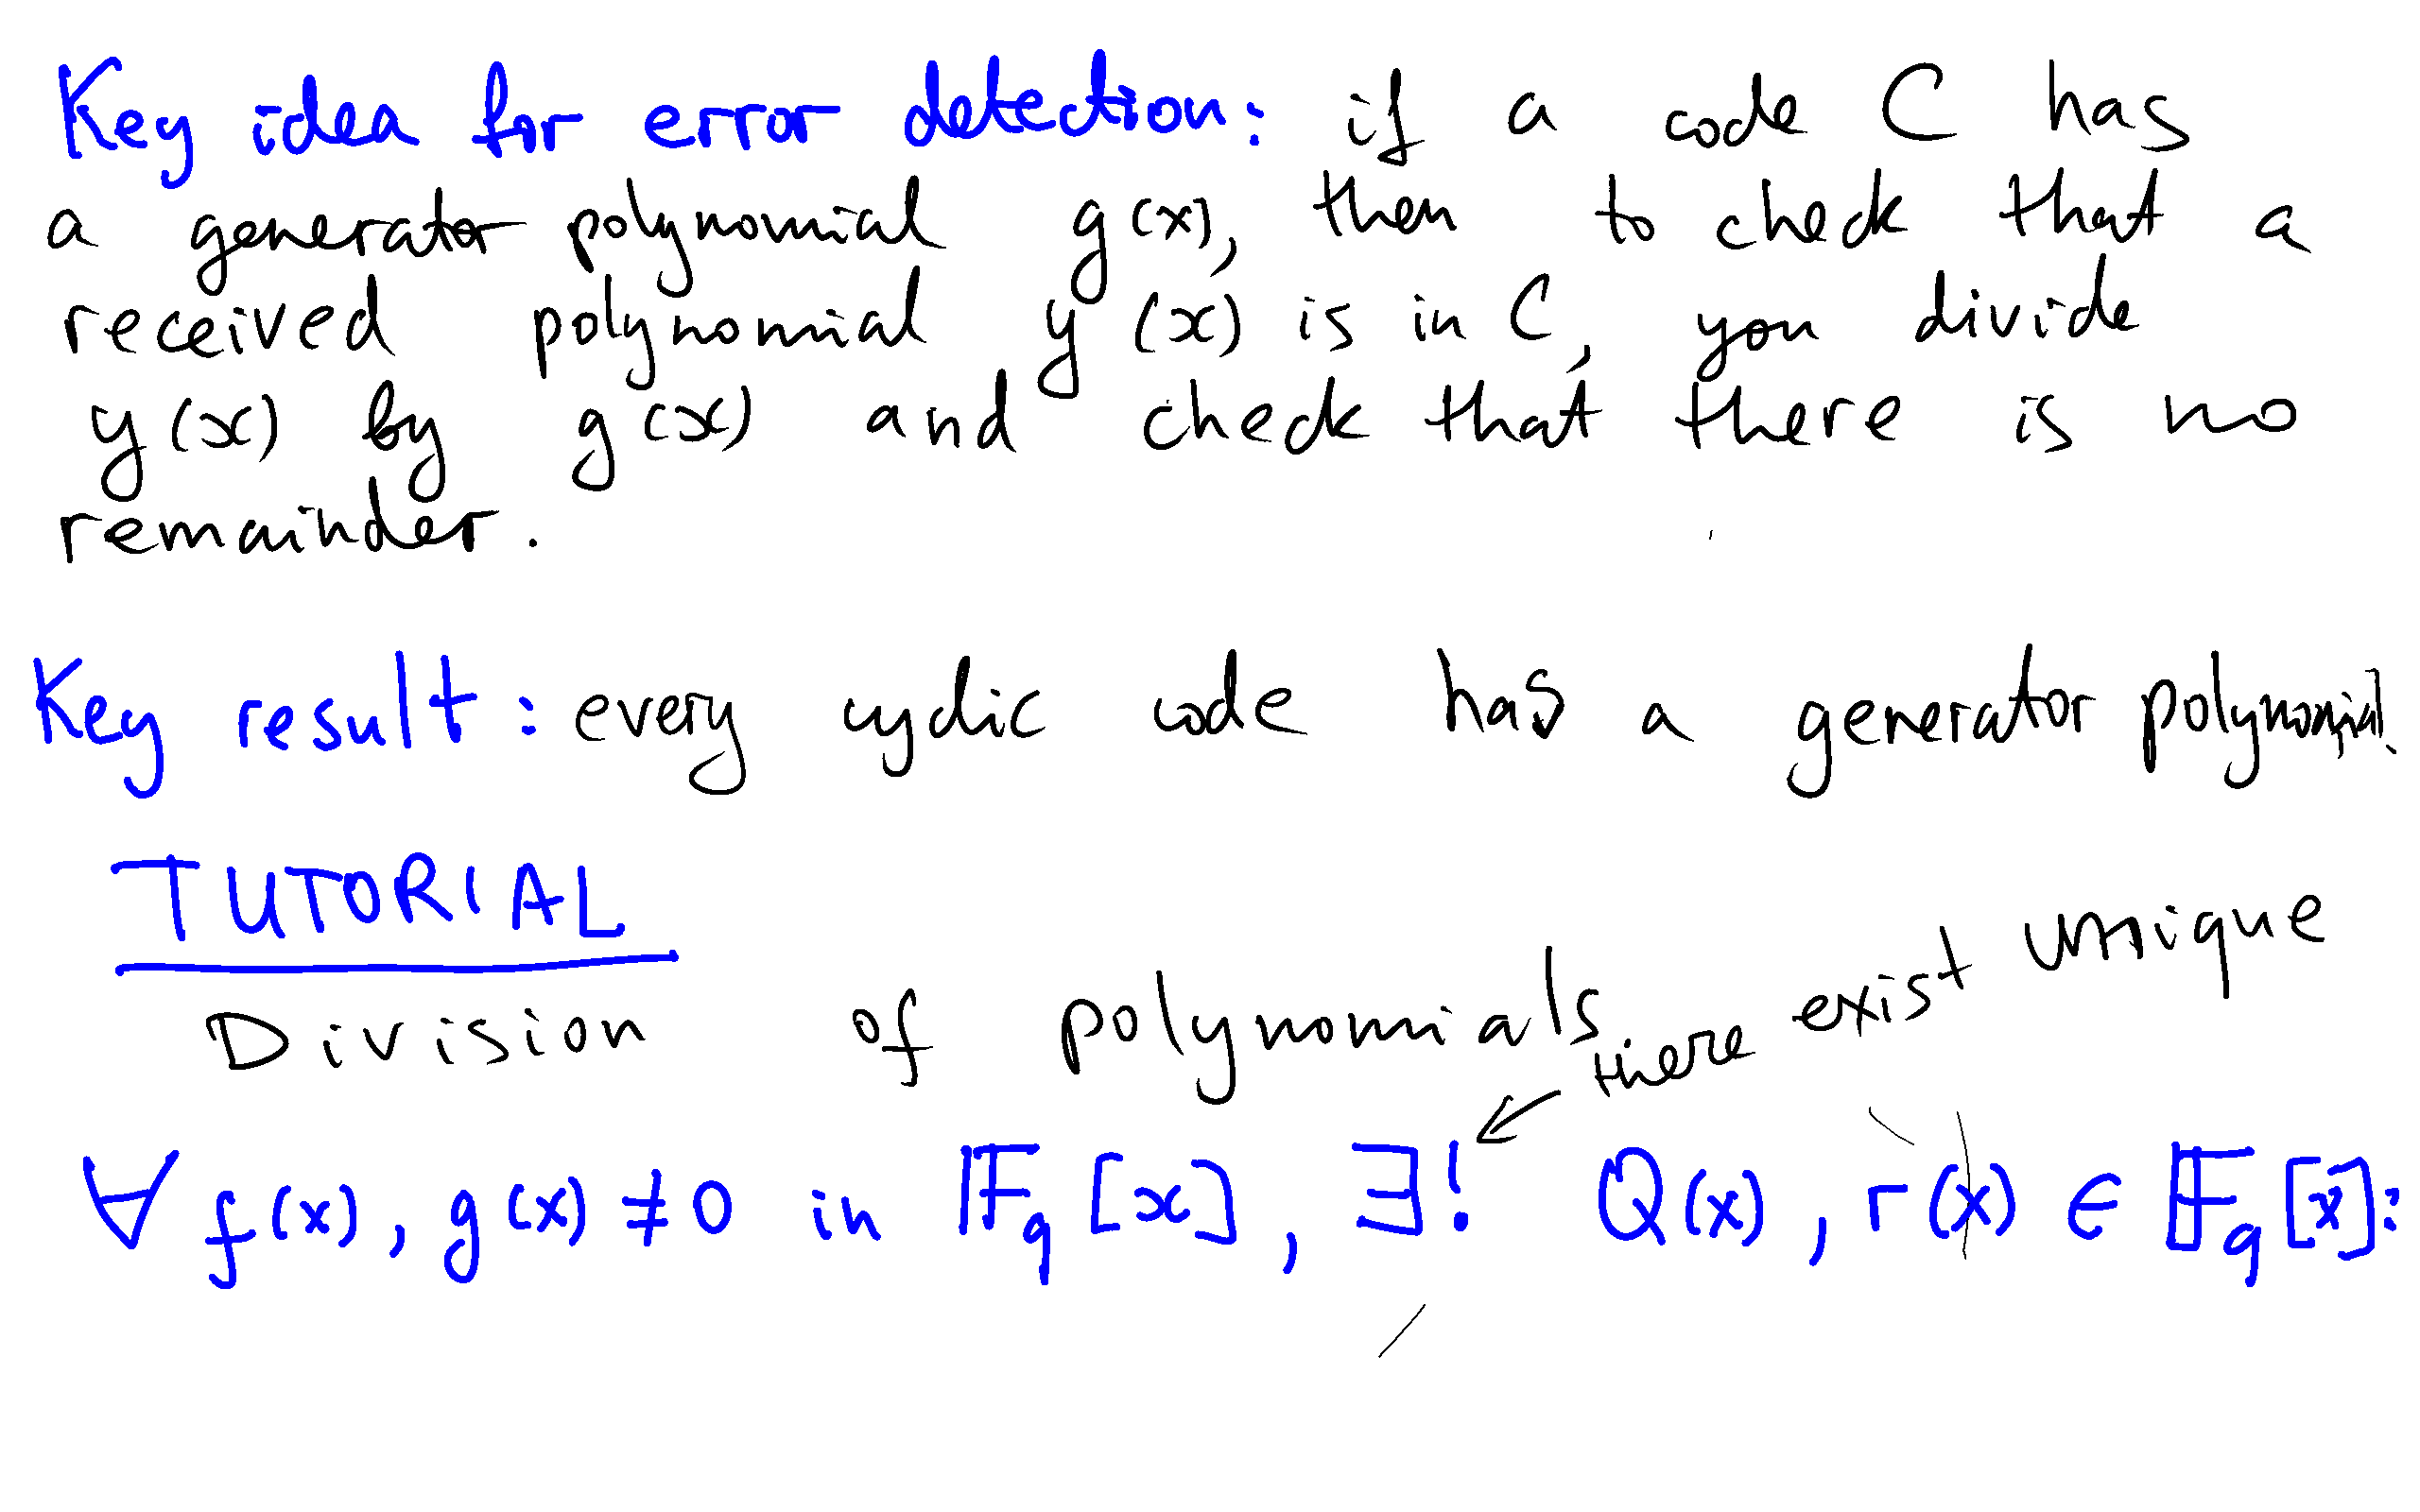 Key idea for error detection: if a code C has
a generator polynomial g(x), then to check that a
received polynomial y(x) is in C, you divide
y(x) by g(x) and check that there is no
remainder.
Key result: every cyclic code has a generator polynomial.
TUTORIAL
Division of polynomials
there exist unique
∀ f(x), g(x) ≠ 0 in 𝔽q[x], ∃! Q(x), r(x) ∈ 𝔽q[x]: